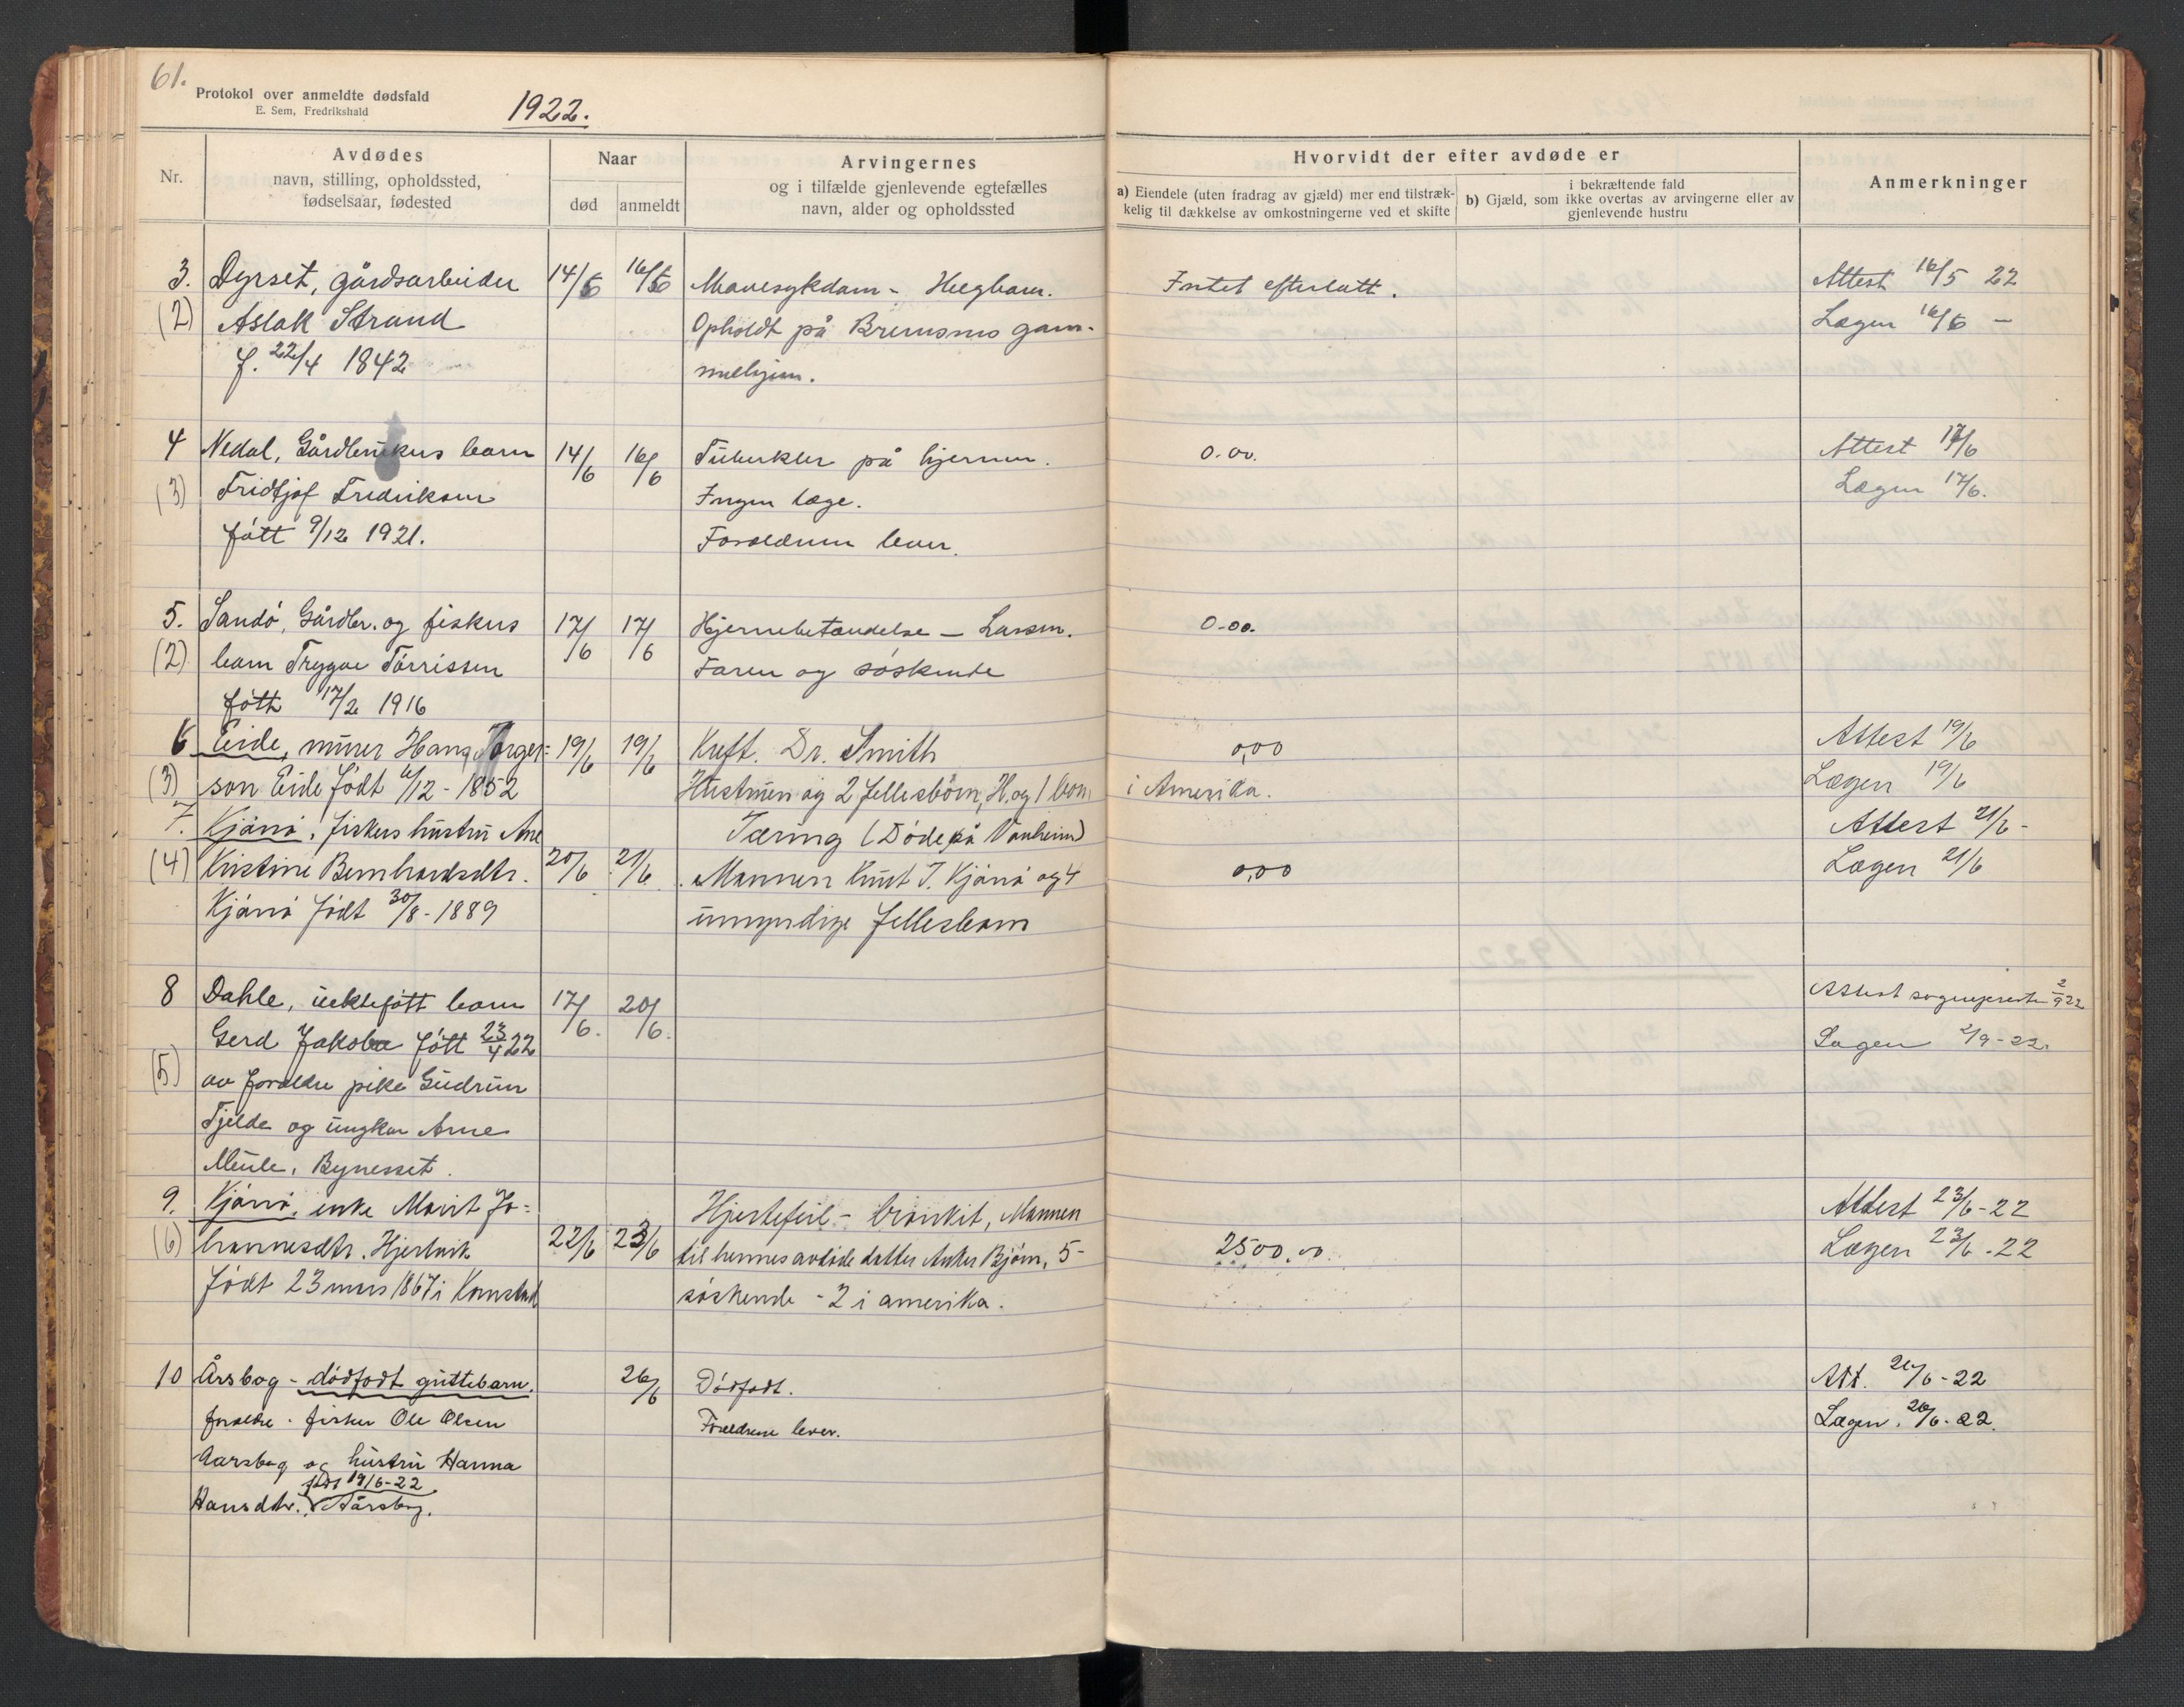 61.
Protokol over anmeldte dødsfald
E. Sem, Fredrikshald
1922.
Nr.
Avdødes
navn, stilling, opholdssted,
fødselsaar, fødested
Naar
død
anmeldt
Arvingernes
og i tilfælde gjenlevende egtefælles
navn, alder og opholdssted
Hvorvidt der efter avdøde er
a) Eiendele (uten fradrag av gjæld) mer end tilstræk-
kelig til dækkelse av omkostningerne ved et skifte
i bekræftende fald
b) Gjæld, som ikke overtas av arvingerne eller av
gjenlevende hustru
Anmerkninger
3. Dyrset, gårdsarbeider 14/6 16/6 Mavesykdom - Intet efterlatt. Attest 16/5 22
(2) Aslak Strand Opholdt på Bremsnes gam- Lægen 16/6 -
f. 22/4 1842 melhjem.
4 Nedal, Gårdbrukers barn 14/6 16/6 Tuberkler på hjernen. 0.00. Attest 17/6
(3) Fridtjof Fredriksen Ingen læge. Lægen 17/6.
født 9/12 1921. Forældrene lever.
5. Sandø, Gårdbr. og fiskers 17/6 17/6 Hjernebetændelse - Larsen. 0.00.
(2) barn Trygve Tørrissen Faren og søskende
født 17/2 1916
6 Eide, murer Hans Torger= 19/6 19/6 Kreft. Dr. Smith 0,00 Attest 19/6
(3) son Eide født 6/12 - 1852 Hustruen og 2 fellesbørn, H. og 1 barn i Amerika. Lægen 19/6
7. Kjønnø, fiskers hustru Ane Tæring (Døde på Vonheim) Attest 21/6 -
(4) Kristine Bernhardsdtr. 20/6 21/6 Mannen Knut J. Kjønnø og 4 0,00 Lægen 21/6
Kjønnø født 30/8 - 1889 umyndige fellesbarn
8 Dahle, uekteføtt barn 17/6 20/6 Attest sogneprest 2/9 22
Gerd Jakoba født 23/4 22 Lægen 2/9 - 22
(5) av forældre pike Gudrun
Tjelde og ungkar Arne
Meule, Bynesset.
9. Kjønnø, enke Marit Jo= Hjertefeil - bronkit, Mannen Attest 23/6 - 22
(6) hannesdtr. Hjertvik 22/6 23/6 til hennes avdøde datter Anders Bjørn, 5 - 2500.00. Lægen 23/6 - 22
født 23 mars 1867 i Kornstad søskende - 2 i amerika.
10 Årsbog - dødfødt guttebarn. 26/6 Dødfødt. Att. 26/6 - 22
forældre - fisker Ole Olsen Forældrene lever. Lægen. 26/6 - 22.
Aarsbog og hustru Hanna
født 19/6 - 22
Hansdtr. Aarsbog.